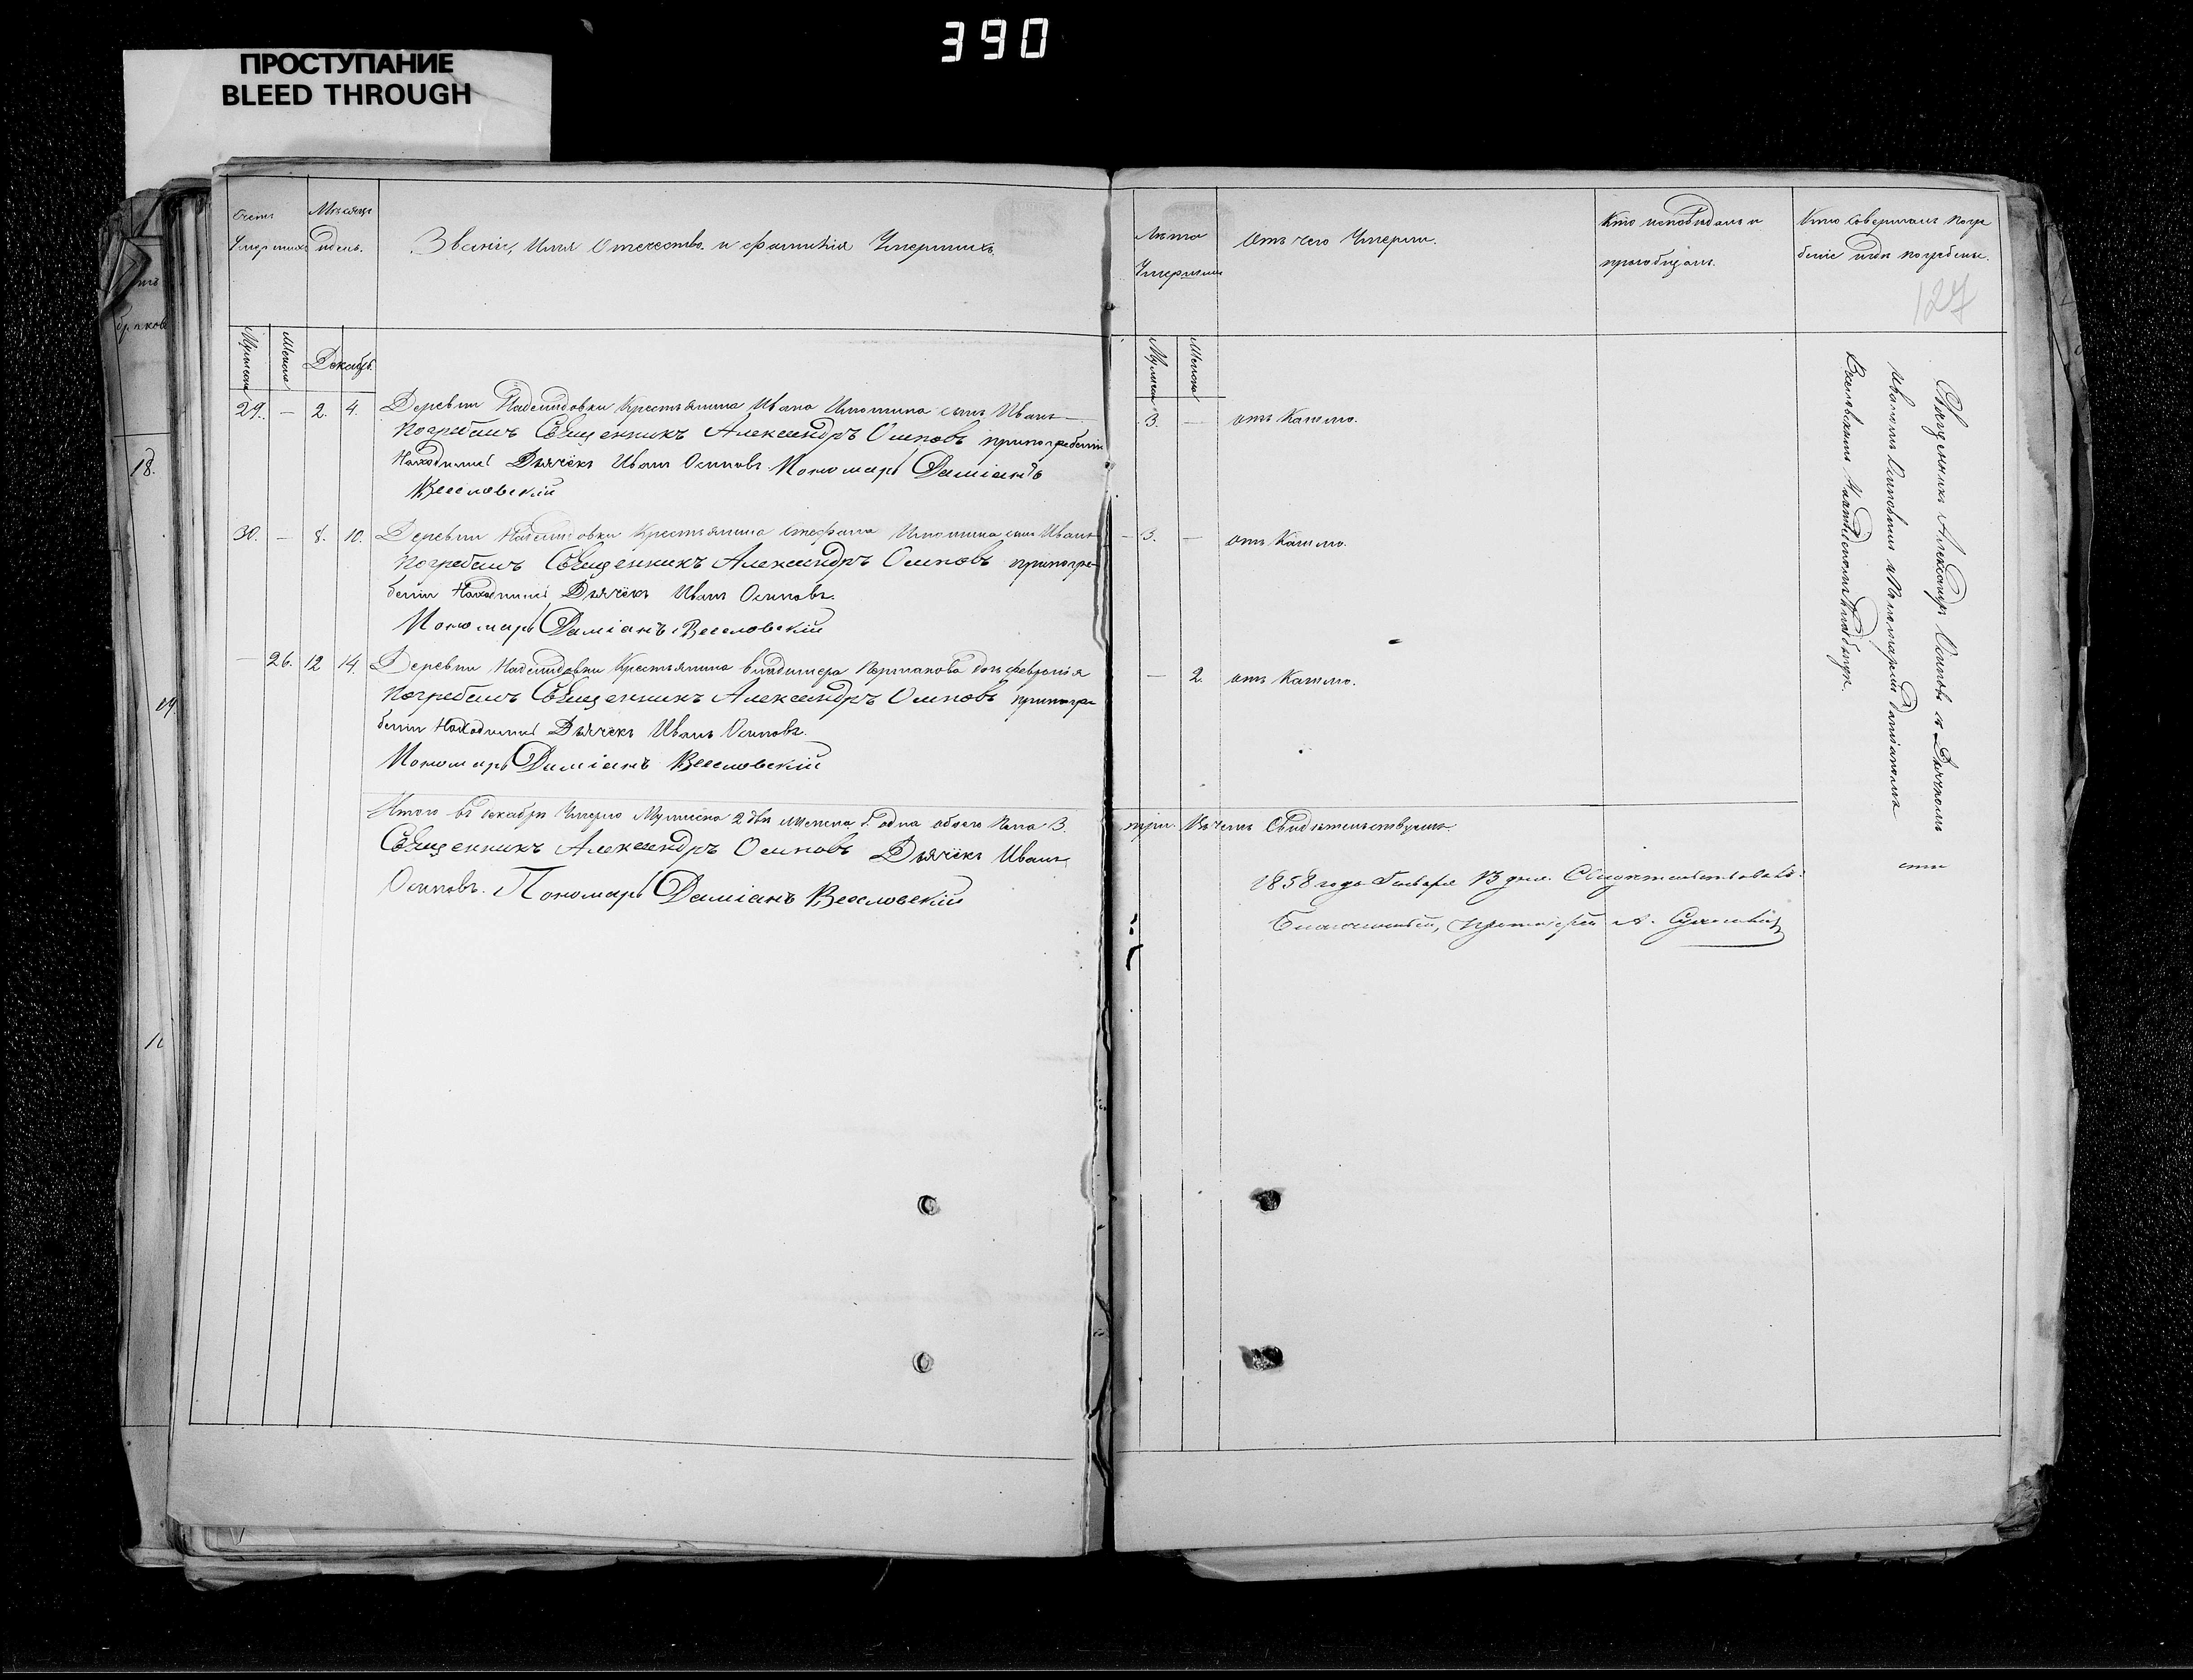 390
ПРОСТУПАНИЕ
BLEED THROUGH
Счетъ Умершихъ
Мѣсяцъ и день.
Званіе, Имя Отечество и фамилія Умершихъ.
Мужеска
Женска
Декабрь
29. — 2. 4. Деревни Надеждовки Крестьянина Ивана сынъ Иванъ
Погребалъ Священникъ Александръ Осиповъ при погребеніи
Находились Дьячекъ Иванъ Осиповъ. Пономарь Даміанъ
Веселовскій
30. — 8. 10. Деревни Надеждовки Крестьянина Стефана сынъ Иванъ
Погребалъ Священникъ Александръ Осиповъ при погре-
беніи Находились Дьячекъ Иванъ Осиповъ.
Пономарь Даміанъ Веселовскій
— 26. 12 14. Деревни Надеждовки Крестьянина Владимера дочь Февронія
Погребалъ Священникъ Александръ Осиповъ при погре
беніи Находились Дьячекъ Иванъ Осиповъ.
Пономарь Даміанъ Веселовскій
Итого въ декабрѣ Умерло Мужеска 2 два Женска 1 одна обоего Пола 3.
Священникъ Александръ Осиповъ Дьячекъ Иванъ
Осиповъ. Пономарь Даміанъ Веселовскій
Лѣта
Умершихъ
Отъ чего Умерли.
Кто исповѣдалъ и
приобщалъ.
Кто совершалъ погре
беніе и гдѣ погребены.
127
Мужеска
Женска
3. — отъ Кашлю.
— 3. — отъ Кашлю.
— 2. отъ Кашлю.
Священникъ Александръ Осиповъ съ Дьячкомъ
Иваномъ Осиповымъ и Пономаремъ Даміаномъ
Веселовскимъ на кладбищѣ
три. Въ чемъ Свидѣтельствуемъ.
1858 года Генваря 13 дня. Свидѣтельствовалъ:
Благочинный, Протоіерей А.
18.
19.